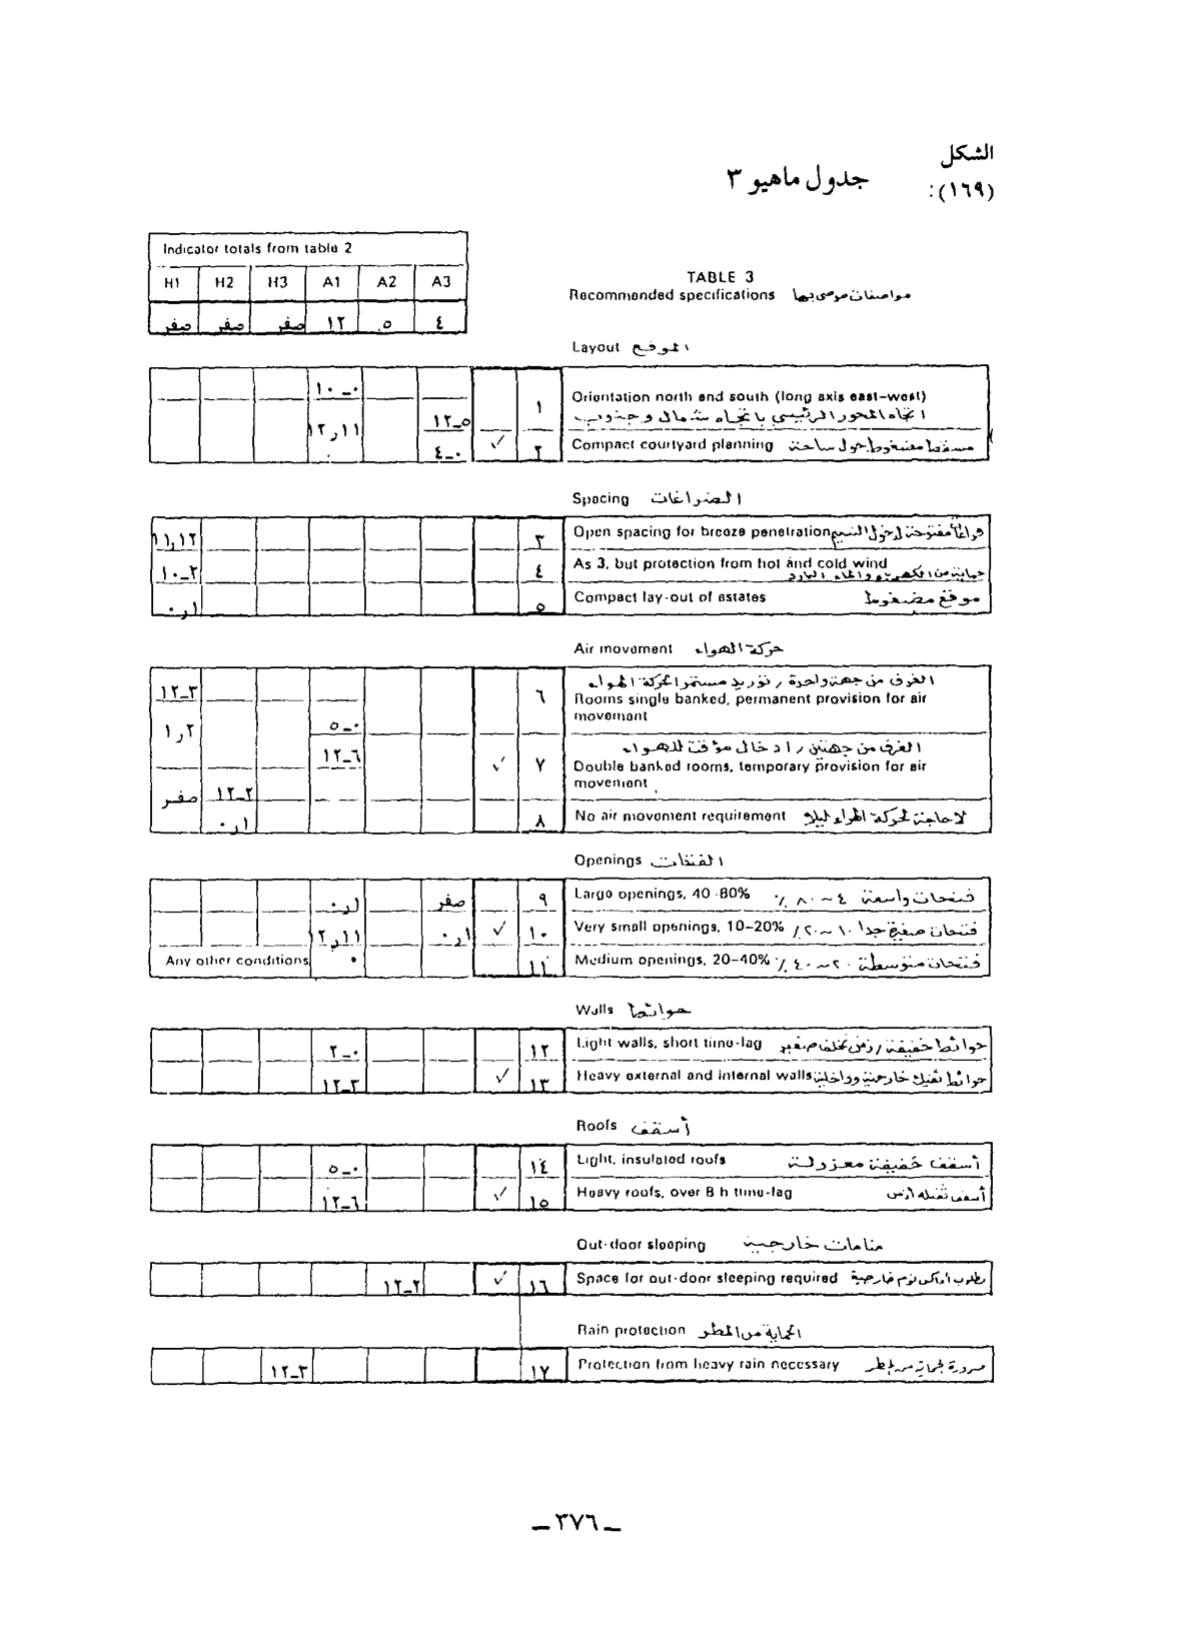 الشكل
(١٦٩):
جدول ماهيو ٣
Indicator totals from table 2
H1 H2 H3 A1 A2 A3
صفر صفر صفر ١٢ ٥ ٤
TABLE 3
Recommended specifications مواصفات موصى بها
Layout الموقع
١٠-٠
Orientation north and south (long axis east-west)
١١ر١٢ ١٢-٥ ١ اتجاه المحور الرئيسي باتجاه شمال وجنوب
٤-٠ ✓ ٢ Compact courtyard planning مسقط مضغوط حول ساحة
Spacing الفراغات
١١,١٢ ٣ Open spacing for breeze penetration
١٠-٢ ٤ As 3, but protection from hot and cold wind
٠ر١ ٥ Compact lay-out of estates موقع مضغوط
Air movement حركة الهواء
الغرف من جهة واحدة / توريد مستمر لحركة الهواء
١٢-٣ ٦ Rooms single banked, permanent provision for air
movement
١ر٢ ٥-٠
الغرف من جهتين / ادخال مؤقت للهواء
١٢-٦ ✓ ٧ Double banked rooms, temporary provision for air
movement
صفر ١٢-٢
٠ر١ ٨ No air movement requirement لا حاجة لحركة الهواء
Openings الفتحات
٠ر١ صفر ٩ Large openings, 40-80% فتحات واسعة ٤٠-٨٠٪
١١ر١٢ ٠ر١ ✓ ١٠ Very small openings, 10-20% فتحات صغيرة جدا ١٠-٢٠٪
Any other conditions ١١ Medium openings, 20-40% فتحات متوسطة ٢٠-٤٠٪
Walls حوائط
٢-٠ ١٢ Light walls, short time-lag حوائط خفيفة / زمن تخلف صغير
١٢-٣ ✓ ١٣ Heavy external and internal walls حوائط ثقيلة خارجية وداخلية
Roofs أسقف
٥-٠ ١٤ Light, insulated roofs أسقف خفيفة معزولة
١٢-٦ ✓ ١٥ Heavy roofs, over 8 h time-lag أسقف ثقيلة
Out-door sleeping منامات خارجية
١٢-٢ ✓ ١٦ Space for out-door sleeping required مطلوب أماكن نوم خارجية
Rain protection الحماية من المطر
١٢-٣ ١٧ Protection from heavy rain necessary
ـ ٣٧٦ ـ